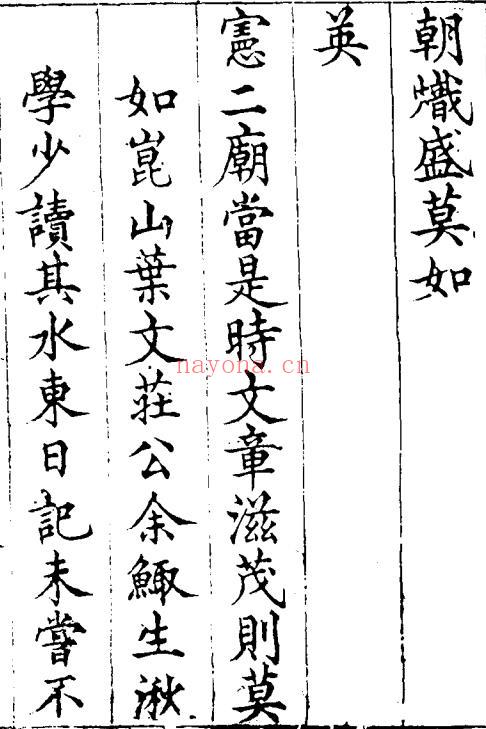 朝熾盛莫如
英
憲二廟當是時文章滋茂則莫
如崑山葉文莊公余鯫生湫
學少讀其水東日記未嘗不
nayona.cn